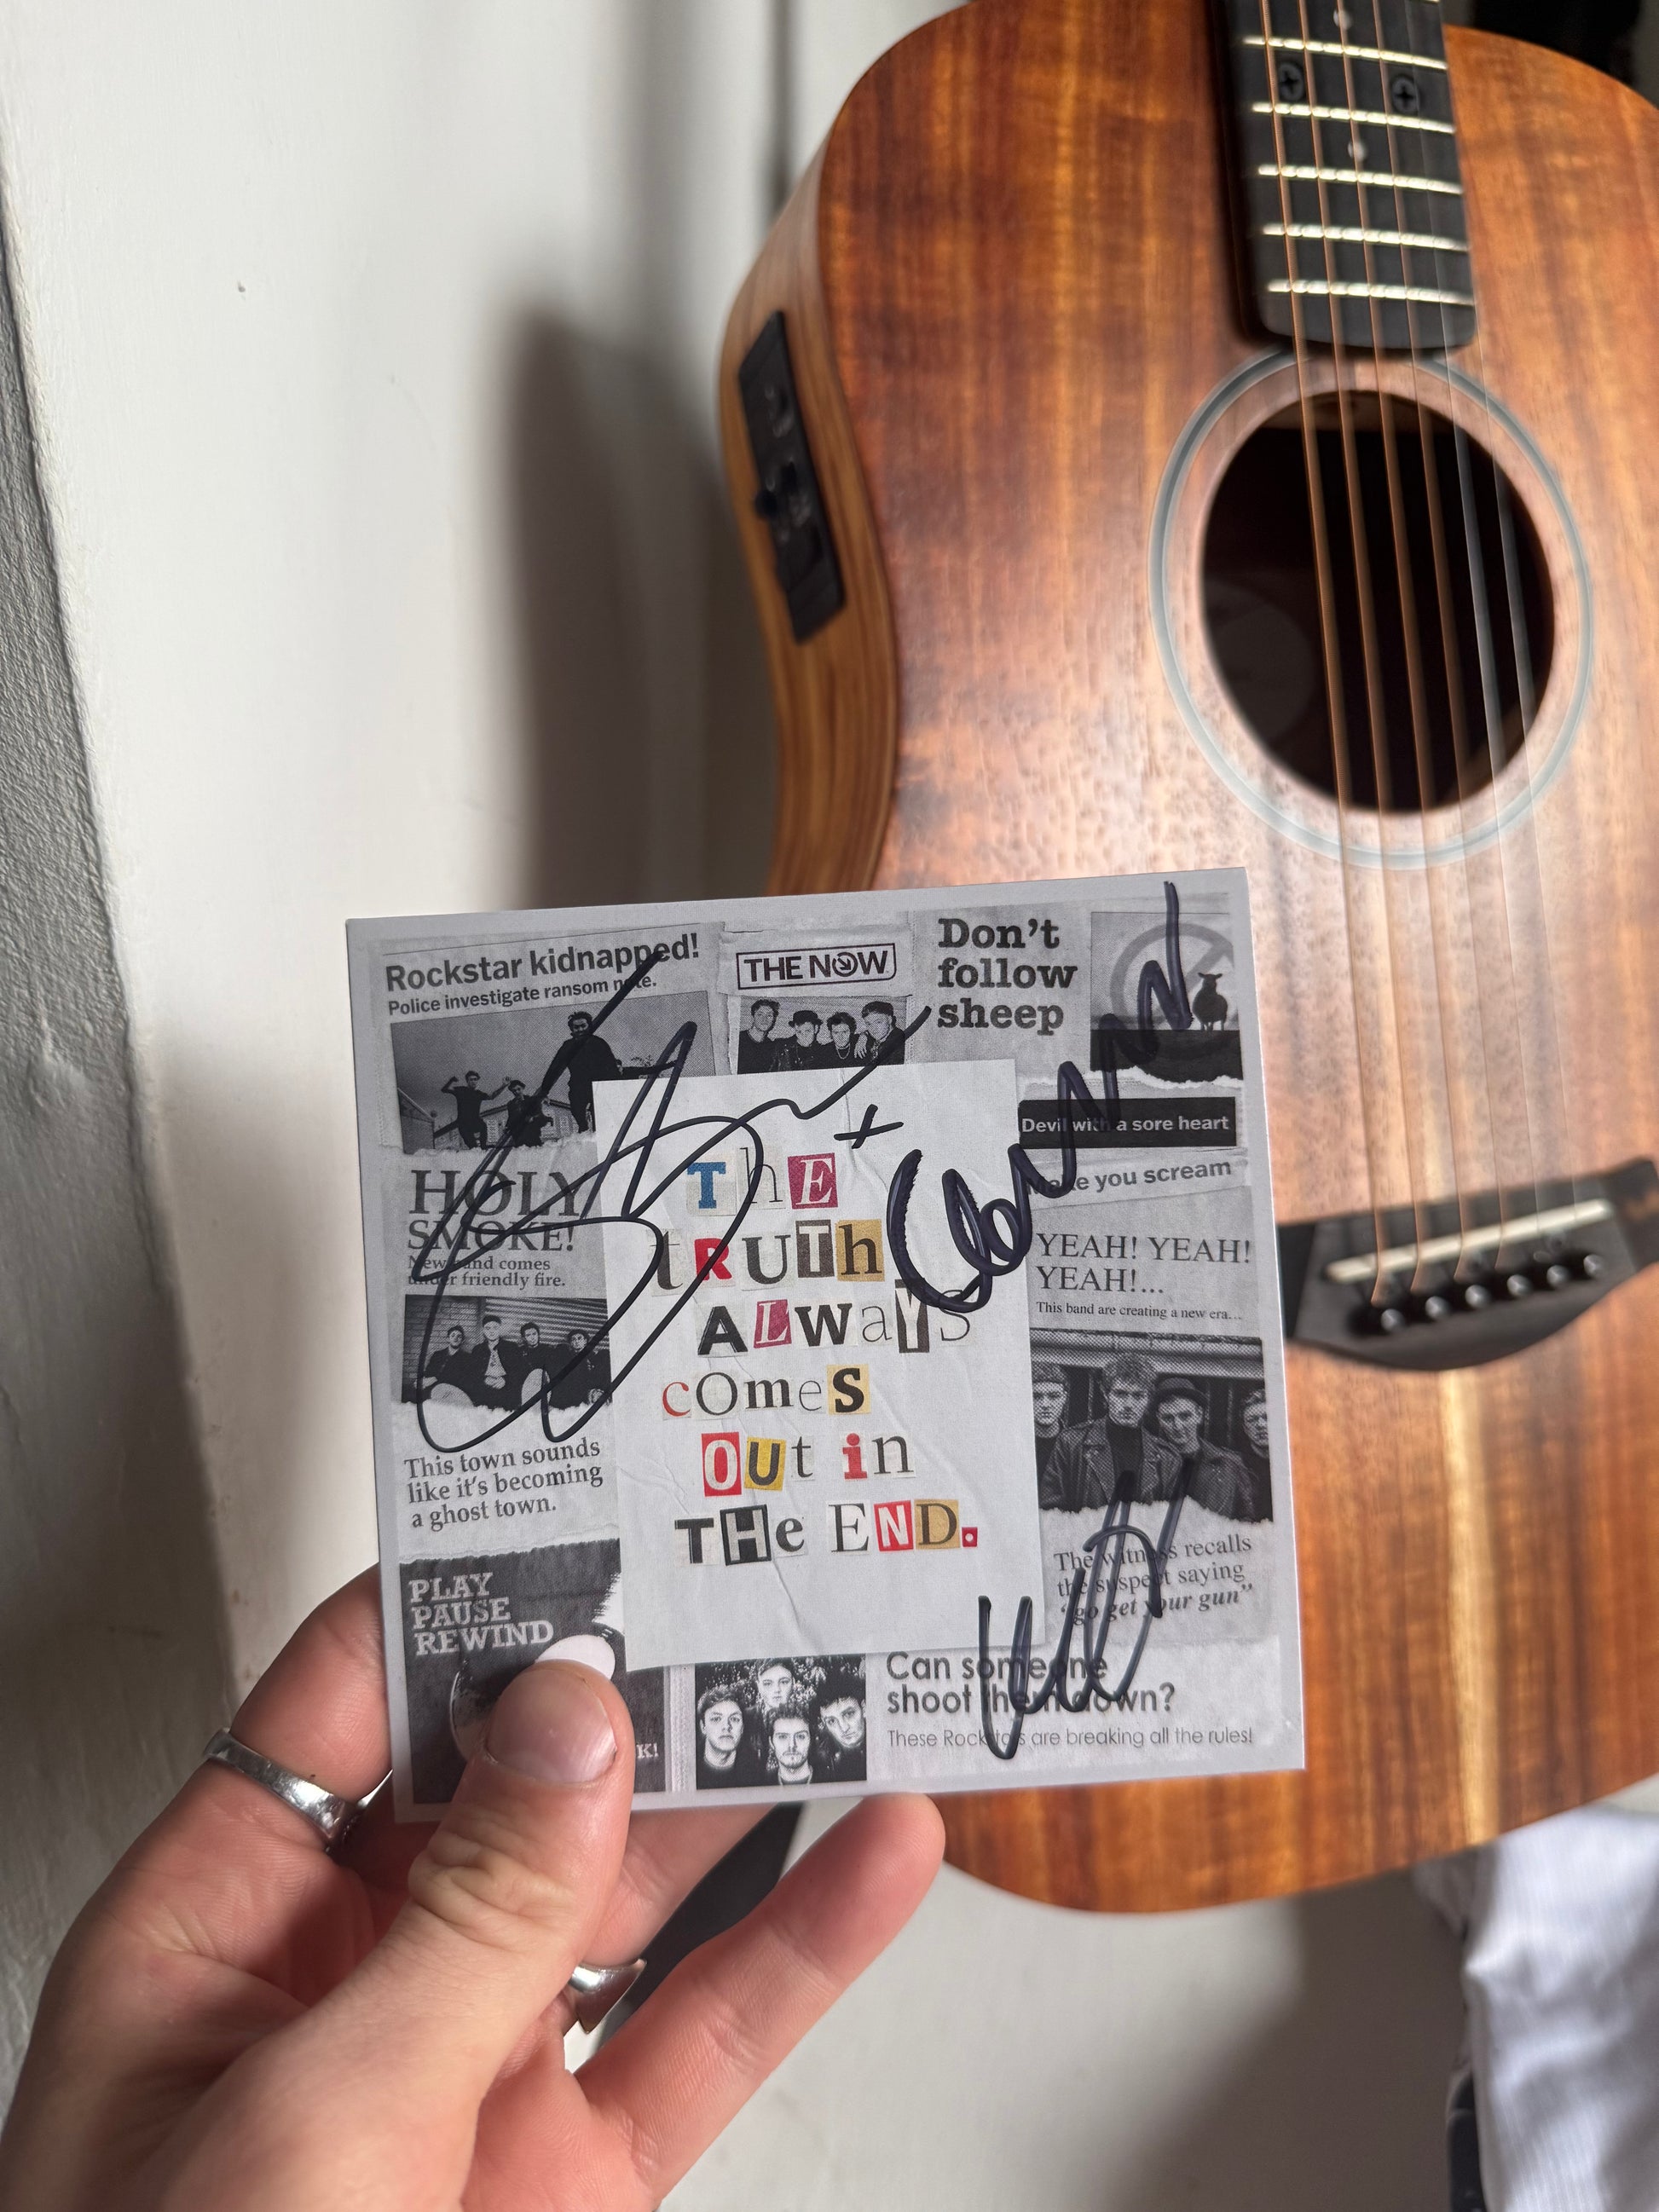 Rockstar kidnapped!
Police investigate ransom note.
THE NOW
Don't
follow
sheep
HOLY
SMOKE!
New band comes
under friendly fire.
This town sounds
like it's becoming
a ghost town.
PLAY
PAUSE
REWIND
K!
ThE
tRUTh
ALwaYS
cOmeS
OUt in
THe END.
Devil with a sore heart
Make you scream
YEAH! YEAH!
YEAH!...
This band are creating a new era...
The witness recalls
the suspect saying
"go get your gun"
Can someone
shoot them down?
These Rockstars are breaking all the rules!